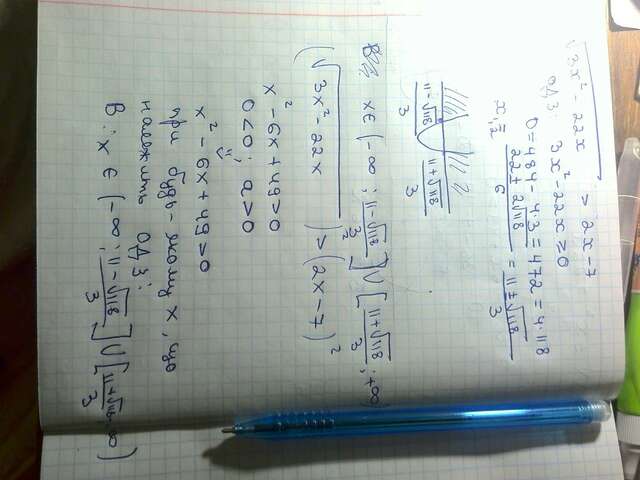 √(3x² - 22x) > 2x - 7
ОДЗ: 3x² - 22x ≥ 0
D = 484 - 4·3 = 472 = 4·118
x₁,₂ = (22 ± 2√118)/6 = (11 ± √118)/3
(11 - √118)/3 (11 + √118)/3
x ∈ (-∞; (11 - √118)/3] ∪ [(11 + √118)/3; +∞)
(√(3x² - 22x))² > (2x - 7)²
x² - 6x + 49 > 0
D < 0; a > 0
⇓
x² - 6x + 49 > 0
при будь-якому x, що
належить ОДЗ:
В: x ∈ (-∞; (11 - √118)/3] ∪ [(11 + √118)/3; ∞)